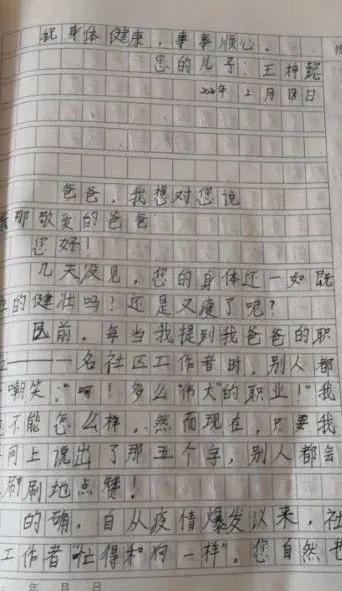 祝身体健康，事事顺心。
您的儿子：王梓懿
2020年2月18日
爸爸，我想对您说
我那敬爱的爸爸：
您好！
几天没见，您的身体还一如既
往的健壮吗？还是又瘦了呢？
以前，每当我提到我爸爸的职
业——一名社区工作者时，别人都
嘲笑："呵！多么"伟大"的职业！"我
也不能怎么样，然而现在，只要我
网上说出了那五个字，别人都会
刷刷地点赞！
的确，自从疫情爆发以来，社
工作者"忙得和狗一样"。您自然也
年 月 日